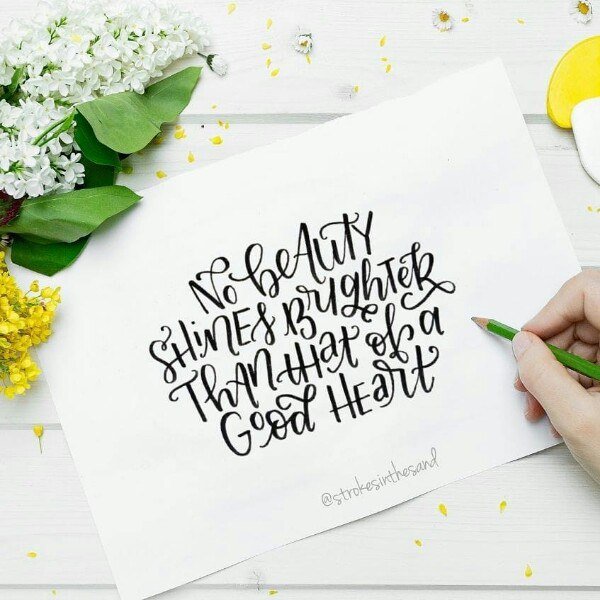 No beAUTY
SHiNES BRigHTER
THAN tHat of a
Good HEaRt
@strokesinthesand